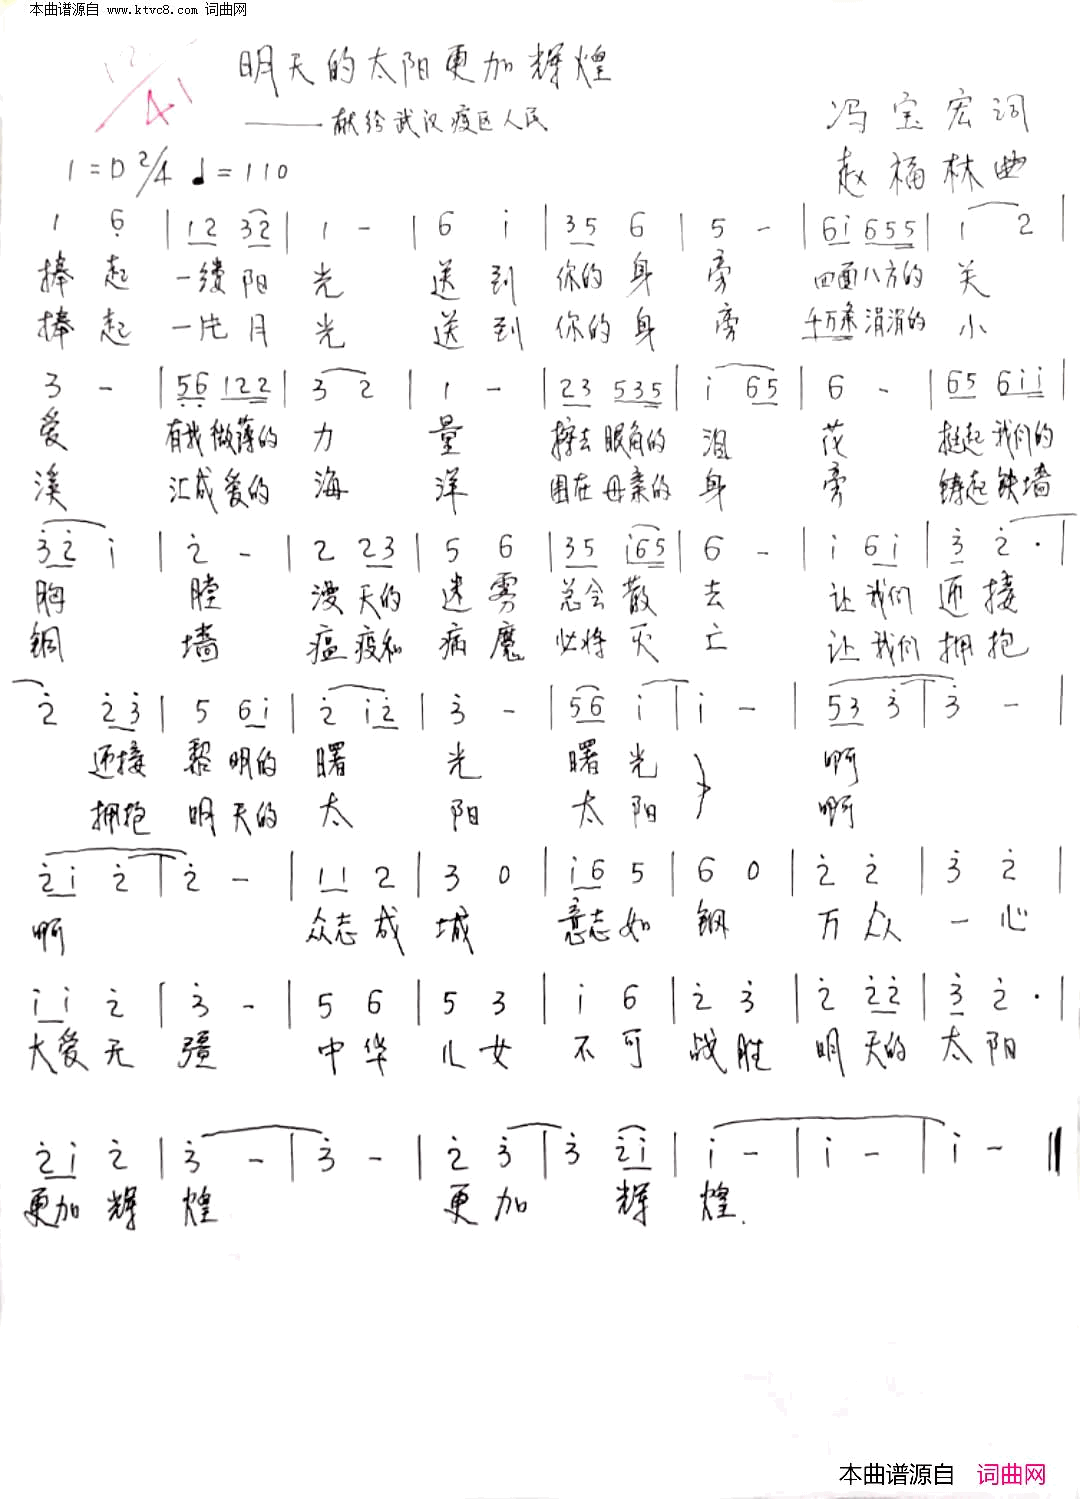 本曲谱源自 www.ktvc8.com 词曲网
明天的太阳更加辉煌
——献给武汉疫区人民
冯宝宏词
1=D 2/4 ♩=110
赵福林曲
1 6̣ | 12 32 | 1 - | 6 i | 35 6 | 5 - | 6i 655 | i 2 |
捧起 一缕阳光 送到 你的身旁 四面八方的关
捧起 一片月光 送到 你的身旁 千万条涓涓的小
3 - | 5̣6̣ 122 | 3 2 | 1 - | 23 535 | i 65 | 6 - | 65 6ii |
爱 有我微薄的力量 擦去眼角的泪花 挺起我们的
溪 汇成爱的海洋 围在母亲的身旁 铸起铁墙
3̇2̇ i | 2̇ - | 2 23 | 5 6 | 35 i65 | 6 - | i 6i | 3̇ 2̇· |
胸膛 漫天的迷雾总会散去 让我们迎接
铜墙 瘟疫和病魔必将灭亡 让我们拥抱
2̇ 2̇3̇ | 5 6i | 2̇ i2̇ | 3̇ - | 56 i | i - | 53 3̇ | 3̇ - |
迎接 黎明的曙光 曙光 啊
拥抱 明天的太阳 太阳 啊
2̇i 2̇ | 2̇ - | 11 2 | 3 0 | i6 5 | 6 0 | 2̇ 2̇ | 3̇ 2̇ |
啊 众志成城 意志如钢 万众一心
ii 2̇ | 3̇ - | 5 6 | 5 3 | i 6 | 2̇ 3̇ | 2̇ 2̇2̇ | 3̇ 2̇· |
大爱无疆 中华儿女 不可战胜 明天的太阳
2̇i 2̇ | 3̇ - | 3̇ - | 2̇ 3̇ | 3̇ 2̇i | i - | i - | i - ‖
更加辉煌 更加 辉煌.
本曲谱源自 词曲网